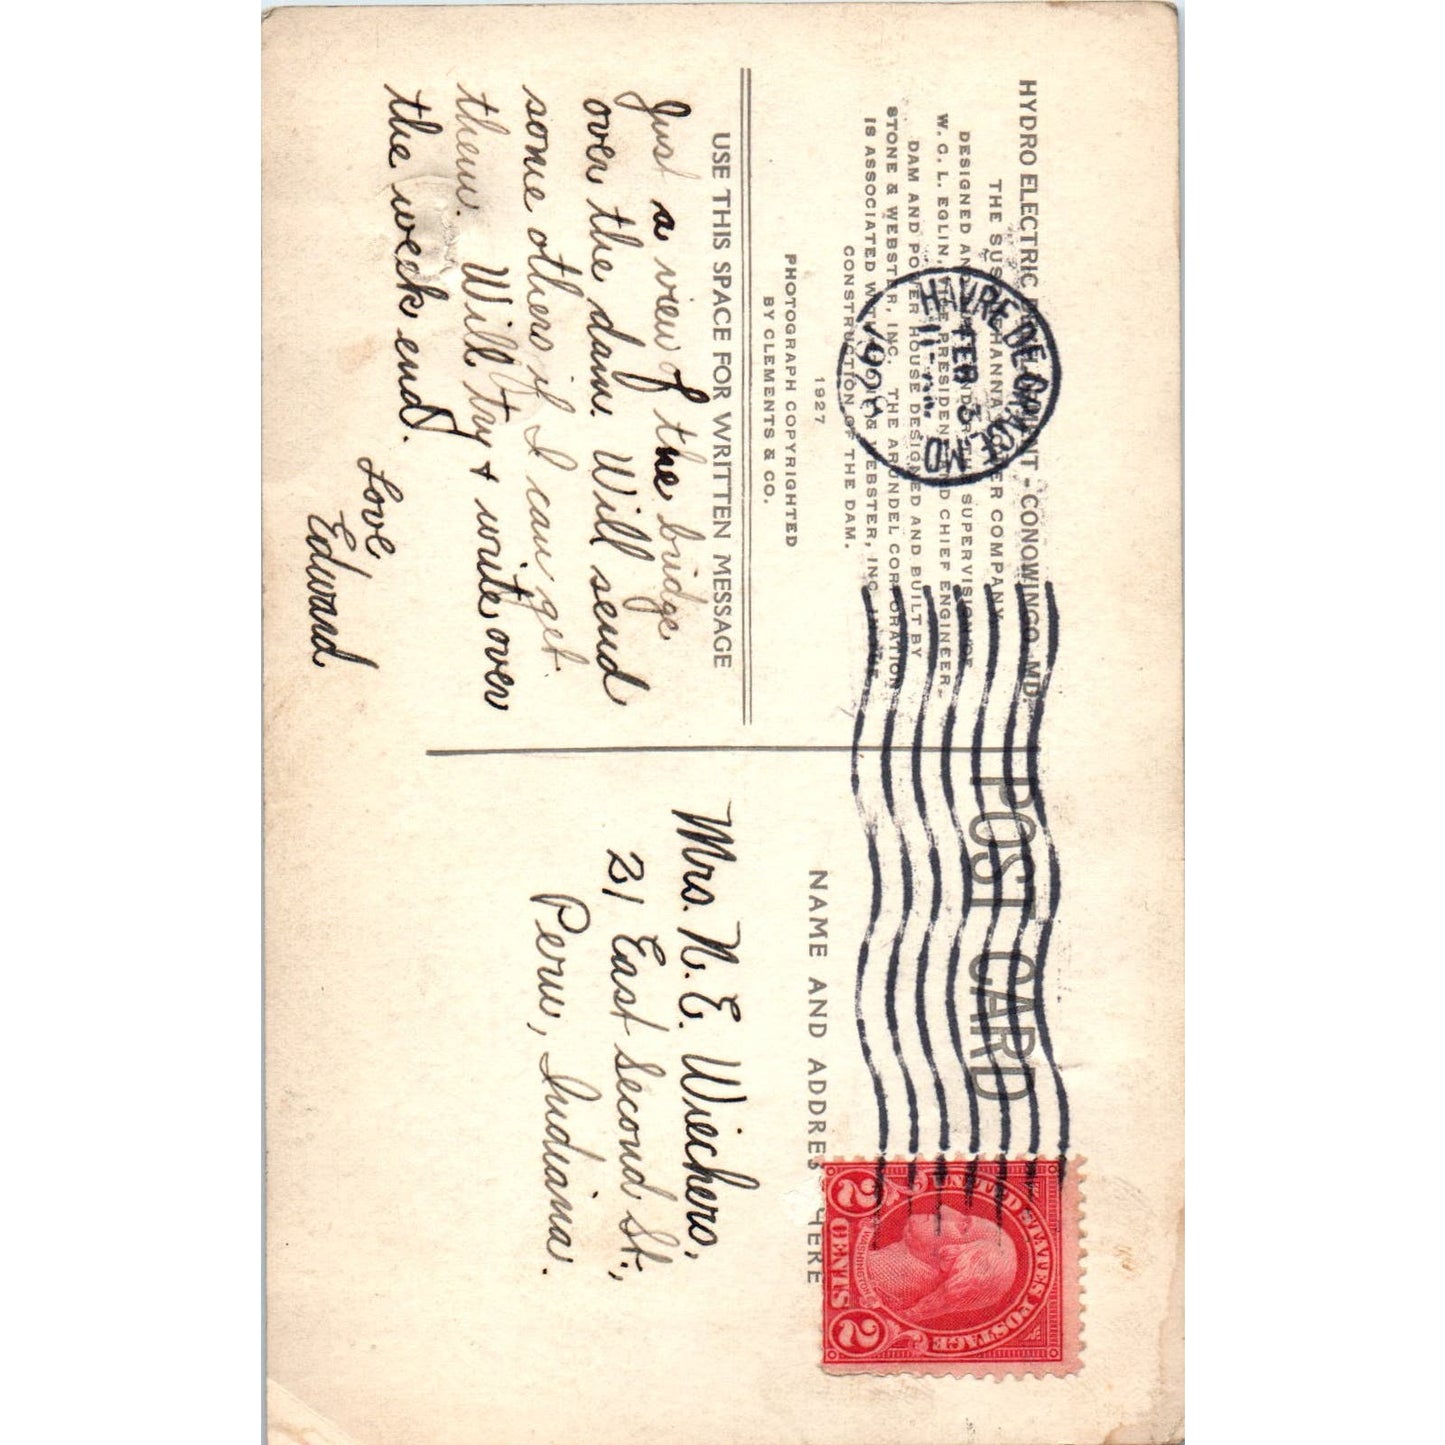 HYDRO ELECTRIC DEVELOPMENT - CONOWINGO, MD.
THE SUSQUEHANNA POWER COMPANY
DESIGNED AND BUILT UNDER THE SUPERVISION OF
W. C. L. EGLIN, VICE PRESIDENT AND CHIEF ENGINEER.
DAM AND POWER HOUSE DESIGNED AND BUILT BY
STONE & WEBSTER, INC. THE ARUNDEL CORPORATION
IS ASSOCIATED WITH STONE & WEBSTER, INC. IN THE
CONSTRUCTION OF THE DAM.
1927
PHOTOGRAPH COPYRIGHTED
BY CLEMENTS & CO.
USE THIS SPACE FOR WRITTEN MESSAGE
Just a view of the bridge
over the dam. Will send
some others if I can get
them. Will try + write over
the week end.
Love
Edward
POST CARD
NAME AND ADDRESS HERE
Mrs. N. E. Wiechers,
21 East Second St.,
Peru, Indiana.
HAVRE DE GRACE MD
FEB 3
11 - AM
1928
UNITED STATES POSTAGE
WASHINGTON
2 CENTS 2